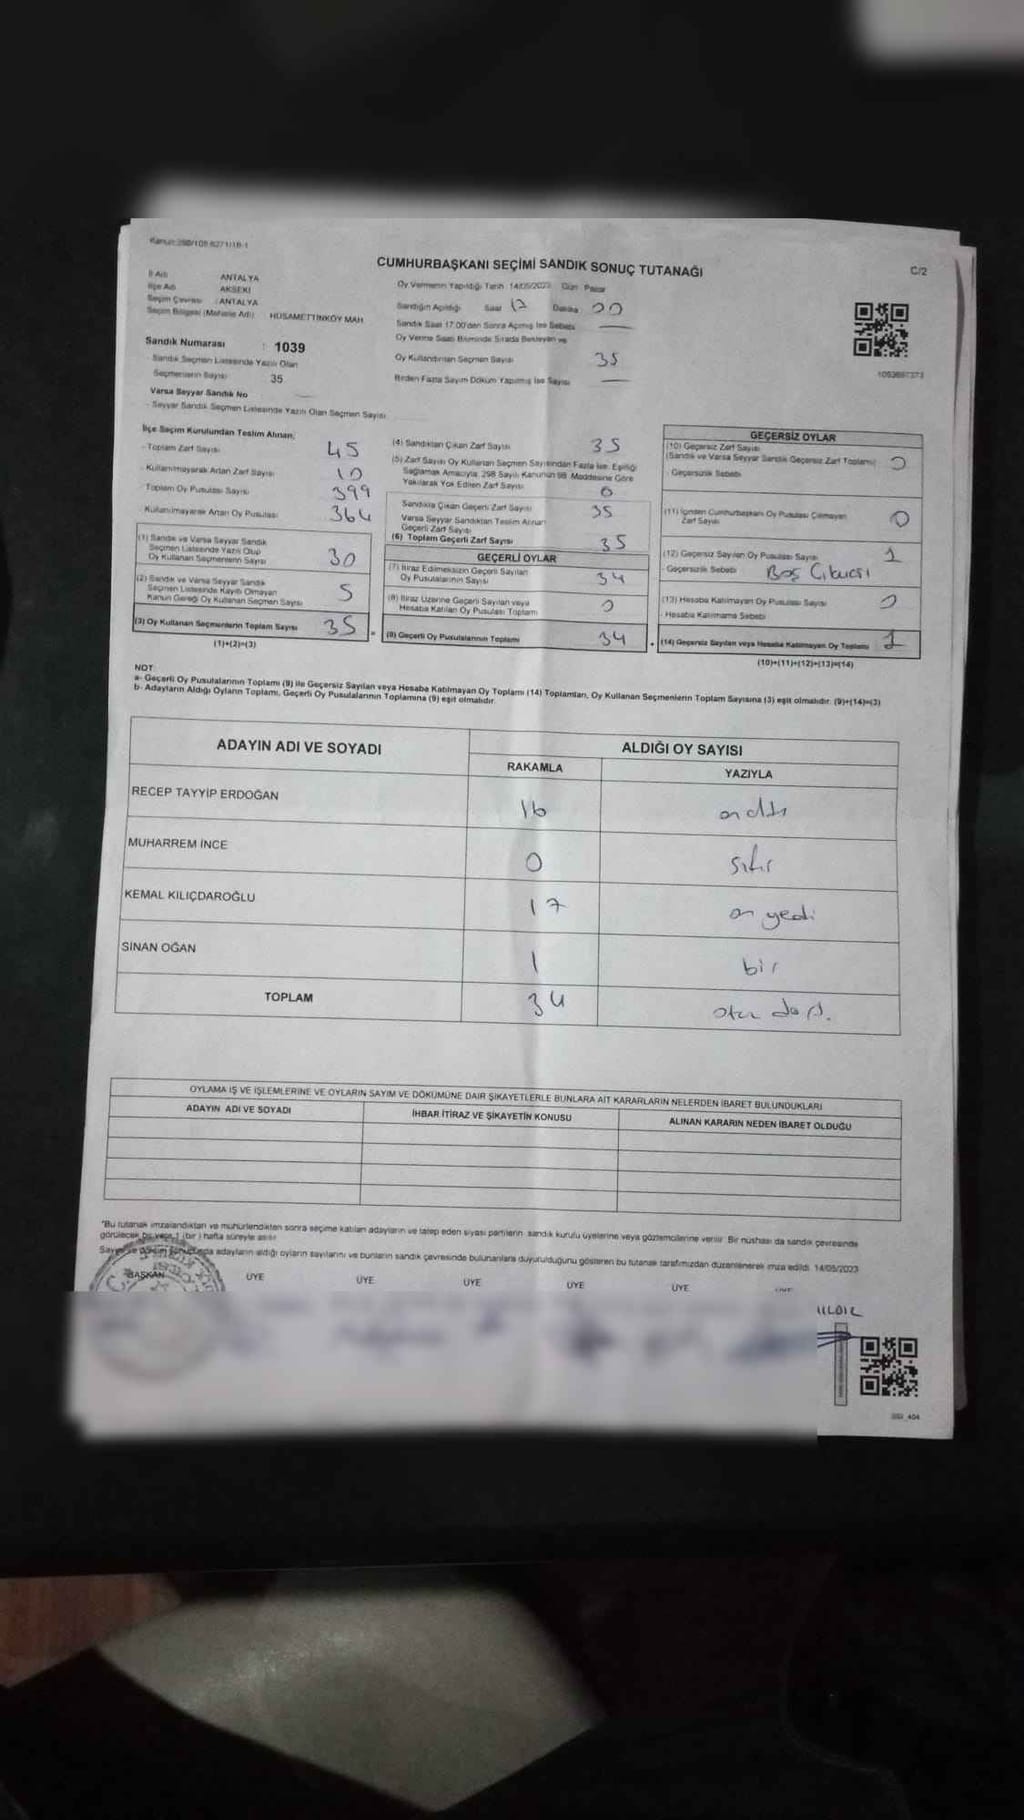 Kanun:298/108 6271/18-1
CUMHURBAŞKANI SEÇİMİ SANDIK SONUÇ TUTANAĞI
C/2
İl Adı ANTALYA
İlçe Adı AKSEKİ
Seçim Çevresi ANTALYA
Seçim Bölgesi (Mahalle Adı) HÜSAMETTİNKÖY MAH.
Sandık Numarası : 1039
- Sandık Seçmen Listesinde Yazılı Olan
Seçmenlerin Sayısı 35
Varsa Seyyar Sandık No
- Seyyar Sandık Seçmen Listesinde Yazılı Olan Seçmen Sayısı
Oy Vermenin Yapıldığı Tarih 14/05/2023 Gün Pazar
Sandığın Açıldığı Saat 17 Dakika 00
Sandık Saat 17:00'den Sonra Açılmış İse Sebebi —
Oy Verme Saati Bitiminde Sırada Bekleyen ve
Oy Kullandırılan Seçmen Sayısı 35
Birden Fazla Sayım Döküm Yapılmış İse Sayısı —
1053697373
İlçe Seçim Kurulundan Teslim Alınan;
- Toplam Zarf Sayısı 45
- Kullanılmayarak Artan Zarf Sayısı 10
- Toplam Oy Pusulası Sayısı 399
- Kullanılmayarak Artan Oy Pusulası 364
(1) Sandık ve Varsa Seyyar Sandık
Seçmen Listesinde Yazılı Olup
Oy Kullanan Seçmenlerin Sayısı 30
(2) Sandık ve Varsa Seyyar Sandık
Seçmen Listesinde Kayıtlı Olmayan
Kanun Gereği Oy Kullanan Seçmen Sayısı 5
(3) Oy Kullanan Seçmenlerin Toplam Sayısı 35
(1)+(2)=(3)
(4) Sandıktan Çıkan Zarf Sayısı 35
(5) Zarf Sayısı Oy Kullanan Seçmen Sayısından Fazla İse, Eşitliği
Sağlamak Amacıyla, 298 Sayılı Kanunun 98. Maddesine Göre
Yakılarak Yok Edilen Zarf Sayısı 0
Sandıkta Çıkan Geçerli Zarf Sayısı 35
Varsa Seyyar Sandıktan Teslim Alınan
Geçerli Zarf Sayısı
(6) Toplam Geçerli Zarf Sayısı 35
GEÇERLİ OYLAR
(7) İtiraz Edilmeksizin Geçerli Sayılan
Oy Pusulalarının Sayısı 34
(8) İtiraz Üzerine Geçerli Sayılan veya
Hesaba Katılan Oy Pusulası Toplamı 0
= (9) Geçerli Oy Pusulalarının Toplamı 34
GEÇERSİZ OYLAR
(10) Geçersiz Zarf Sayısı
(Sandık ve Varsa Seyyar Sandık Geçersiz Zarf Toplamı) 0
- Geçersizlik Sebebi
(11) İçinden Cumhurbaşkanı Oy Pusulası Çıkmayan
Zarf Sayısı 0
(12) Geçersiz Sayılan Oy Pusulası Sayısı 1
- Geçersizlik Sebebi Boş Çıkması
(13) Hesaba Katılmayan Oy Pusulası Sayısı 0
- Hesaba Katılmama Sebebi
+ (14) Geçersiz Sayılan veya Hesaba Katılmayan Oy Toplamı 1
(10)+(11)+(12)+(13)=(14)
NOT:
a- Geçerli Oy Pusulalarının Toplamı (9) ile Geçersiz Sayılan veya Hesaba Katılmayan Oy Toplamı (14) Toplamları, Oy Kullanan Seçmenlerin Toplam Sayısına (3) eşit olmalıdır. (9)+(14)=(3)
b- Adayların Aldığı Oyların Toplamı, Geçerli Oy Pusulalarının Toplamına (9) eşit olmalıdır.
ADAYIN ADI VE SOYADI ALDIĞI OY SAYISI
RAKAMLA YAZIYLA
RECEP TAYYİP ERDOĞAN 16 on altı
MUHARREM İNCE 0 sıfır
KEMAL KILIÇDAROĞLU 17 on yedi
SİNAN OĞAN 1 bir
TOPLAM 34 otuz dört.
OYLAMA İŞ VE İŞLEMLERİNE VE OYLARIN SAYIM VE DÖKÜMÜNE DAİR ŞİKAYETLERLE BUNLARA AİT KARARLARIN NELERDEN İBARET BULUNDUKLARI
ADAYIN ADI VE SOYADI İHBAR İTİRAZ VE ŞİKAYETİN KONUSU ALINAN KARARIN NEDEN İBARET OLDUĞU
"Bu tutanak imzalandıktan ve mühürlendikten sonra seçime katılan adayların ve talep eden siyasi partilerin sandık kurulu üyelerine veya gözlemcilerine verilir. Bir nüshası da sandık çevresinde
görülecek bir yere 1 (bir) hafta süreyle asılır.
Sayım ve döküm sonucunda adayların aldığı oyların sayılarını ve bunların sandık çevresinde bulunanlara duyurulduğunu gösteren bu tutanak tarafımızdan düzenlenerek imza edildi. 14/05/2023
BAŞKAN ÜYE ÜYE ÜYE ÜYE ÜYE ÜYE